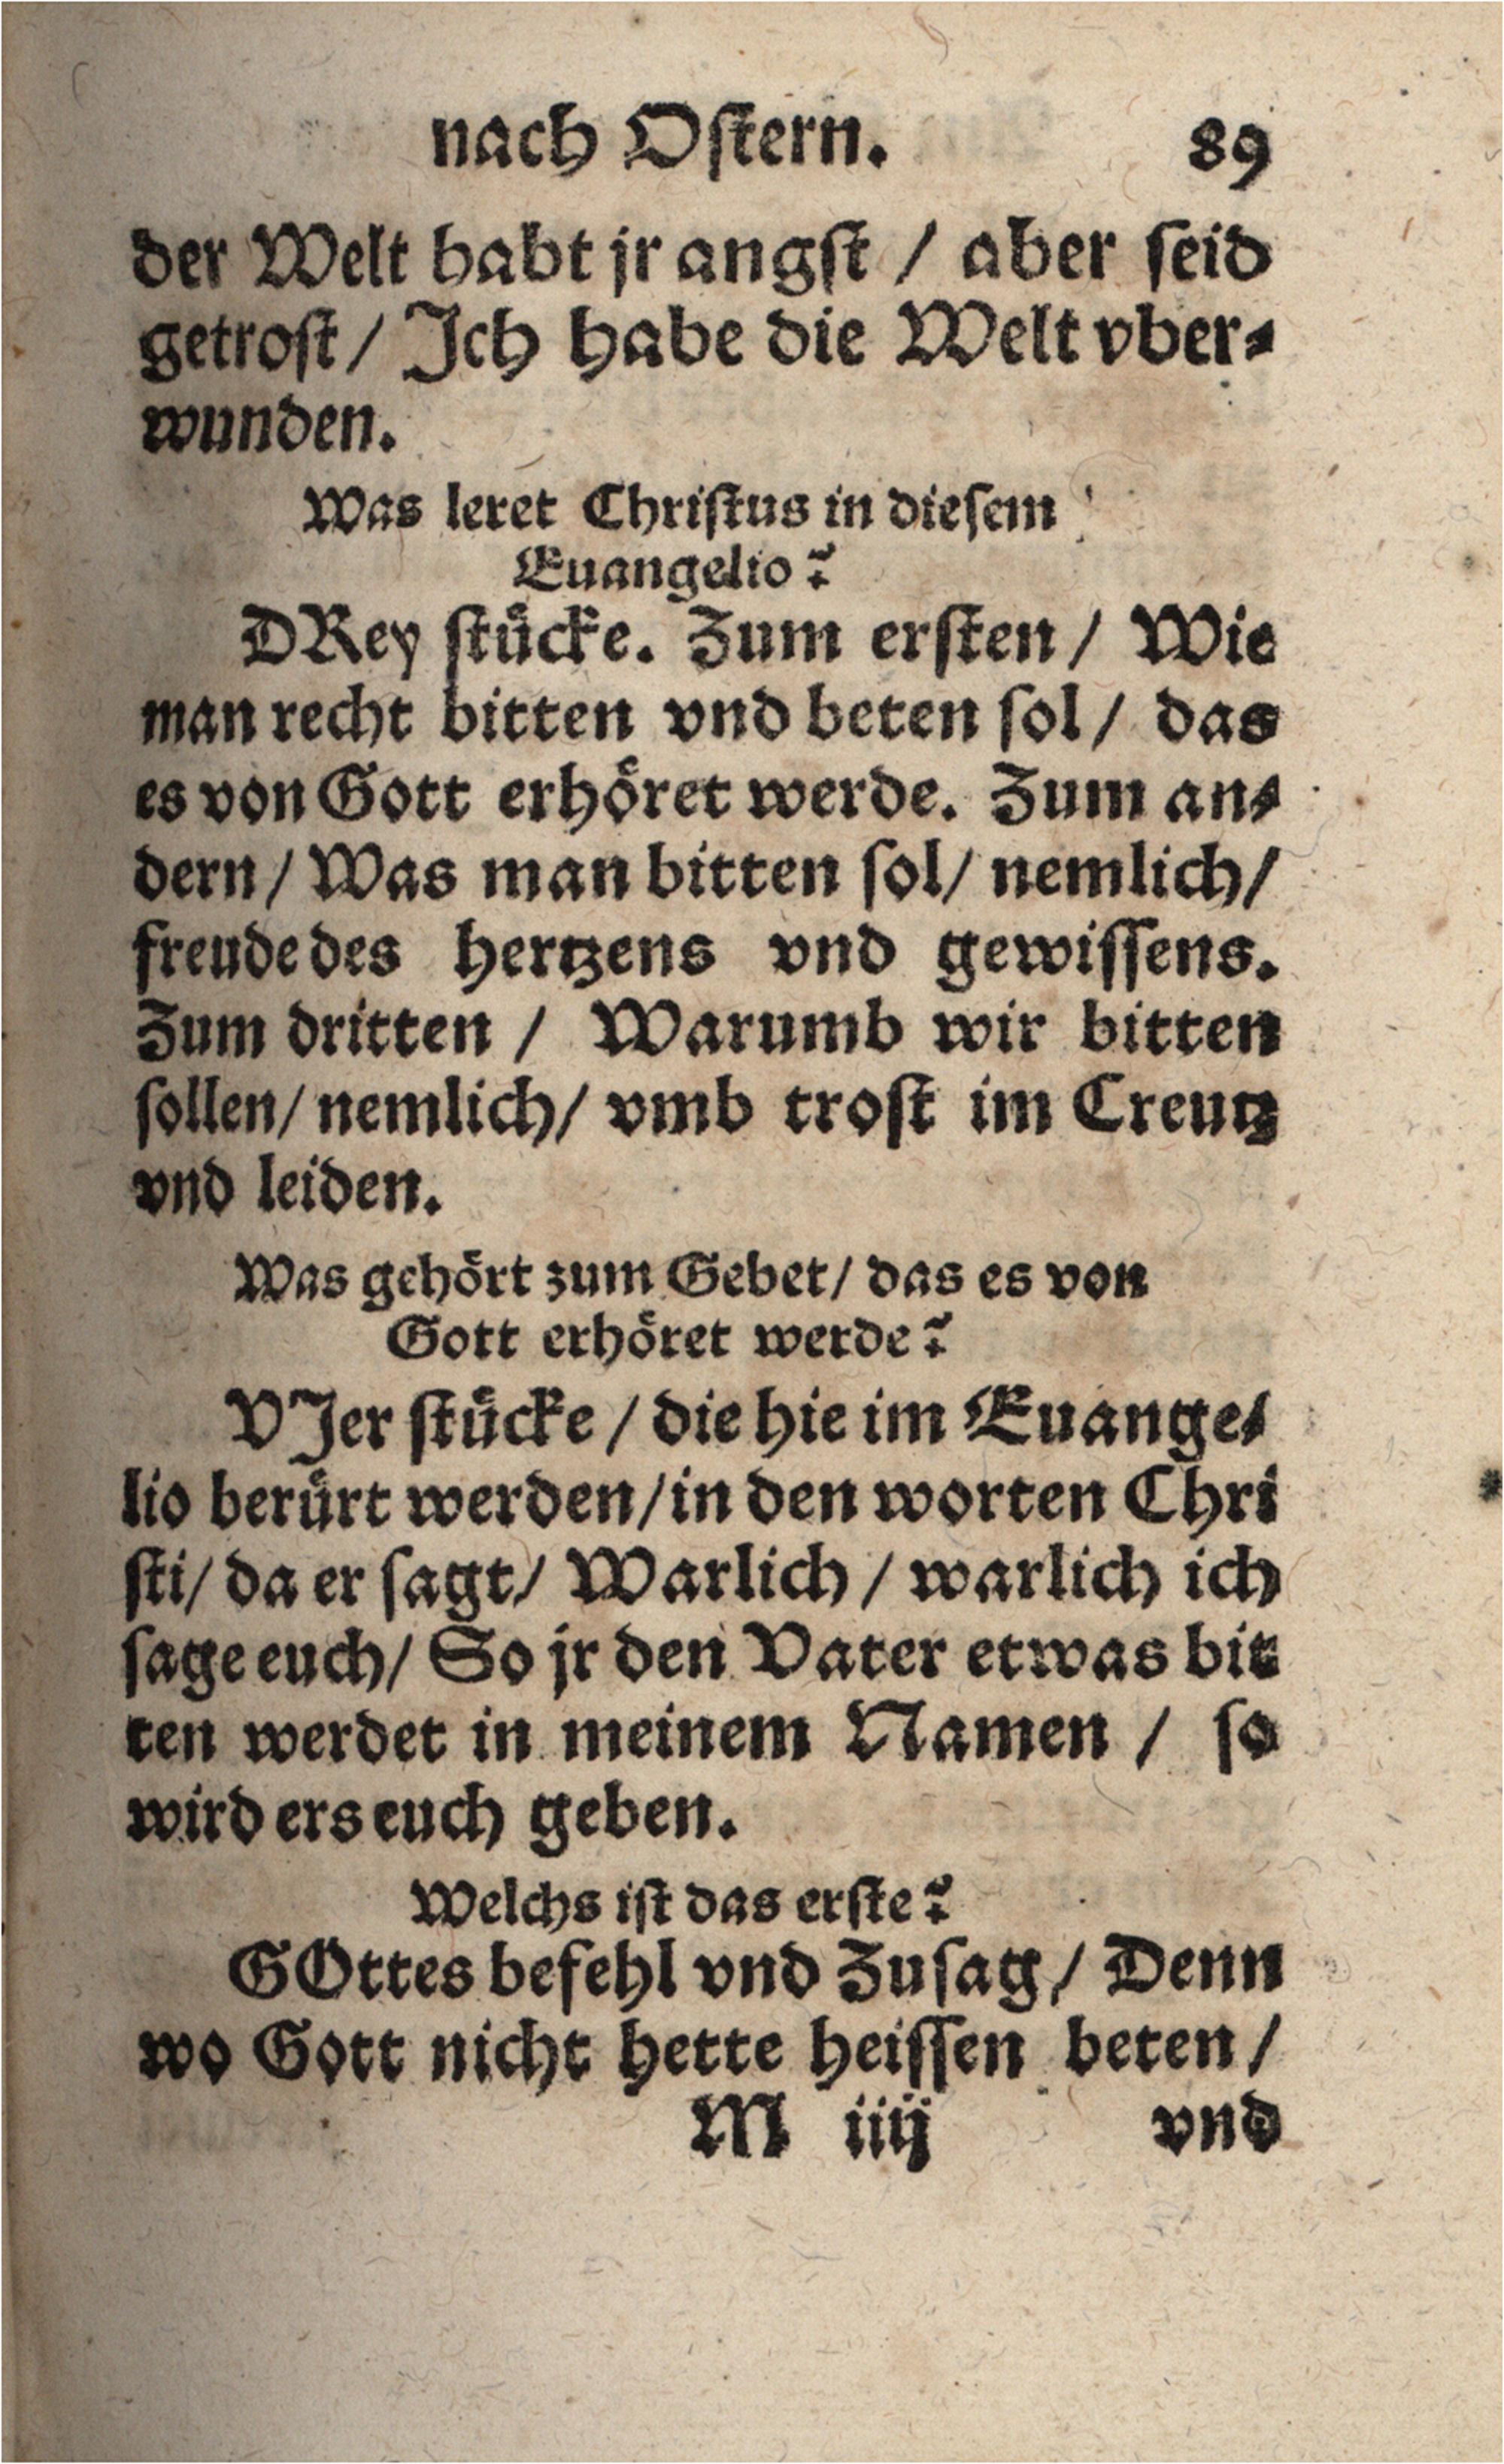 nach Oſtern. 89
der Welt habt jr angſt / aber ſeid
getroſt / Ich habe die Welt vber⸗
wunden.
Was leret Chriſtus in dieſem
Euangelio?
DRey ſtuͤcke. Zum erſten / Wie
man recht bitten vnd beten ſol / das
es von Gott erhoͤret werde. Zum an⸗
dern / Was man bitten ſol / nemlich /
freude des hertzens vnd gewiſſens.
Zum dritten / Warumb wir bitten
ſollen / nemlich / vmb troſt im Creutz
vnd leiden.
Was gehoͤrt zum Gebet / das es von
Gott erhoͤret werde?
VIer ſtuͤcke / die hie im Euange⸗
lio beruͤrt werden / in den worten Chri
ſti / da er ſagt / Warlich / warlich ich
ſage euch / So jr den Vater etwas bit
ten werdet in meinem Namen / ſo
wird ers euch geben.
Welchs iſt das erſte?
GOttes befehl vnd Zuſag / Denn
wo Gott nicht hette heiſſen beten /
M iiij vnd